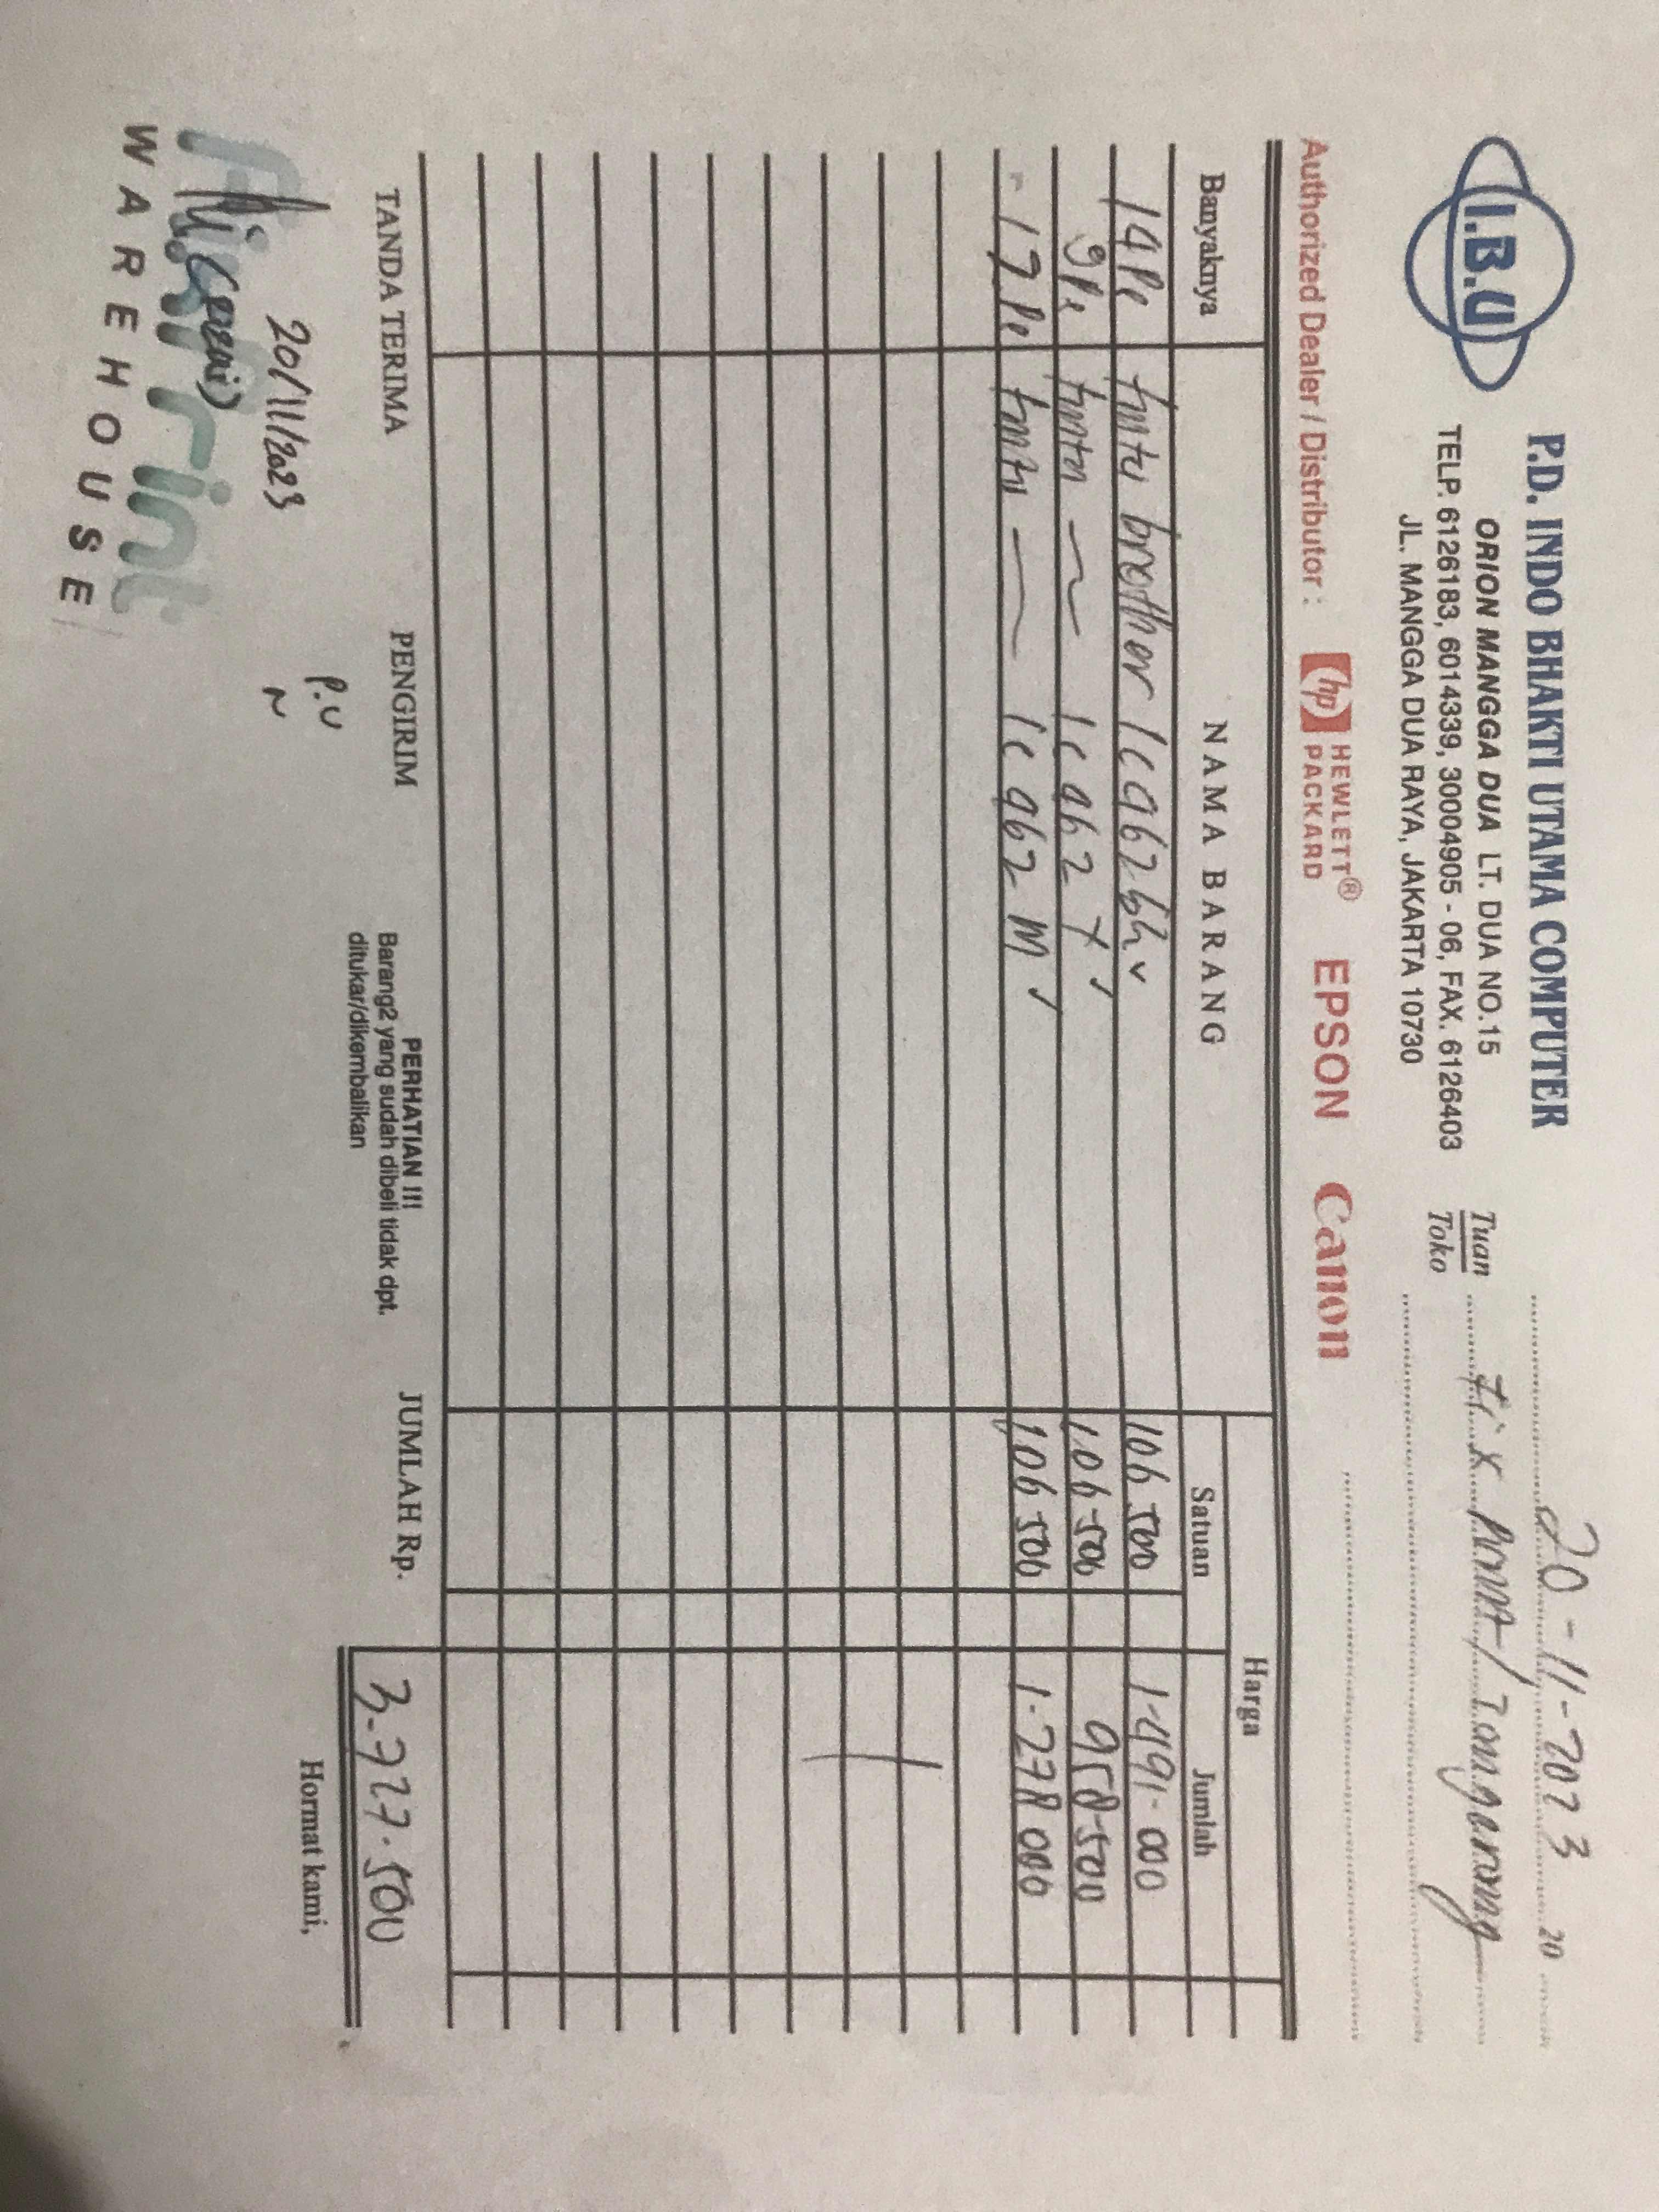 I.B.U
P.D. INDO BHAKTI UTAMA COMPUTER
ORION MANGGA DUA LT. DUA NO.15
TELP. 6126183, 6014339, 30004905 - 06, FAX. 6126403
JL. MANGGA DUA RAYA, JAKARTA 10730
20-11-2023 20
Tuan
Toko
Fix Print / Tangerang
Authorized Dealer / Distributor : hp HEWLETT® PACKARD EPSON Canon
Banyaknya NAMA BARANG Harga
Satuan Jumlah
14 Pc tinta brother lc 962 bk 106 500 1.491.000
9 Pc tinta ~ lc 962 Y 106.500 958.500
12 Pc tinta — lc 962 M 106 500 1.278 000
TANDA TERIMA PENGIRIM PERHATIAN !!! JUMLAH Rp. 3.727.500
Barang2 yang sudah dibeli tidak dpt.
ditukar/dikembalikan
Hormat kami,
P.U
20/11/2023
WAREHOUSE